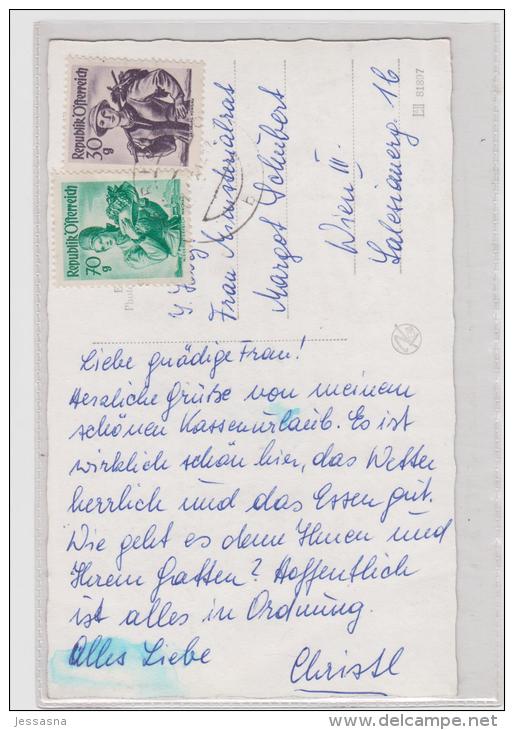 Republik Österreich
30 g
Republik Österreich
70 g
Frau Ministerialrat
Margot Schubert
Wien III.
Salesianerg. 16
81807
Liebe gnädige Frau!
Herzliche Grüße von meinem
schönen Kassenurlaub. Es ist
wirklich schön hier, das Wetter
herrlich und das Essen gut.
Wie geht es denn Ihnen und
Ihrem Gatten? Hoffentlich
ist alles in Ordnung.
Alles Liebe
Christl
jessasna
delcampe.net